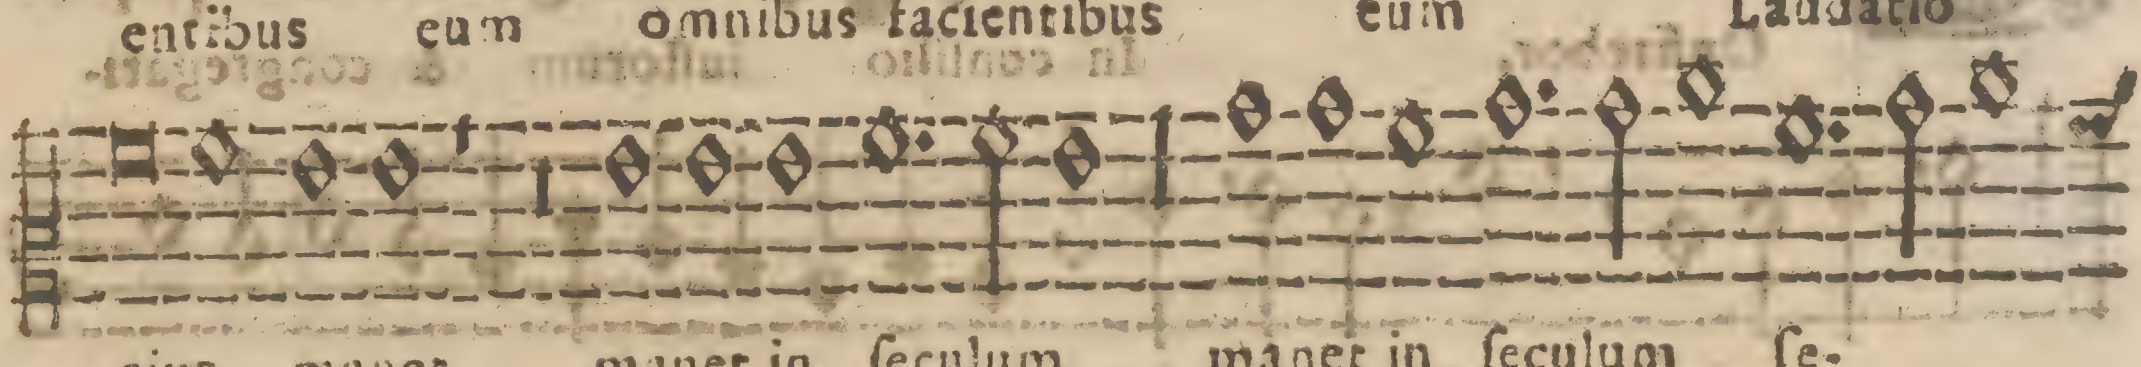 entibus eum omnibus facientibus eum Laudatio
eius manet manet in ſeculum manet in ſeculum ſe-